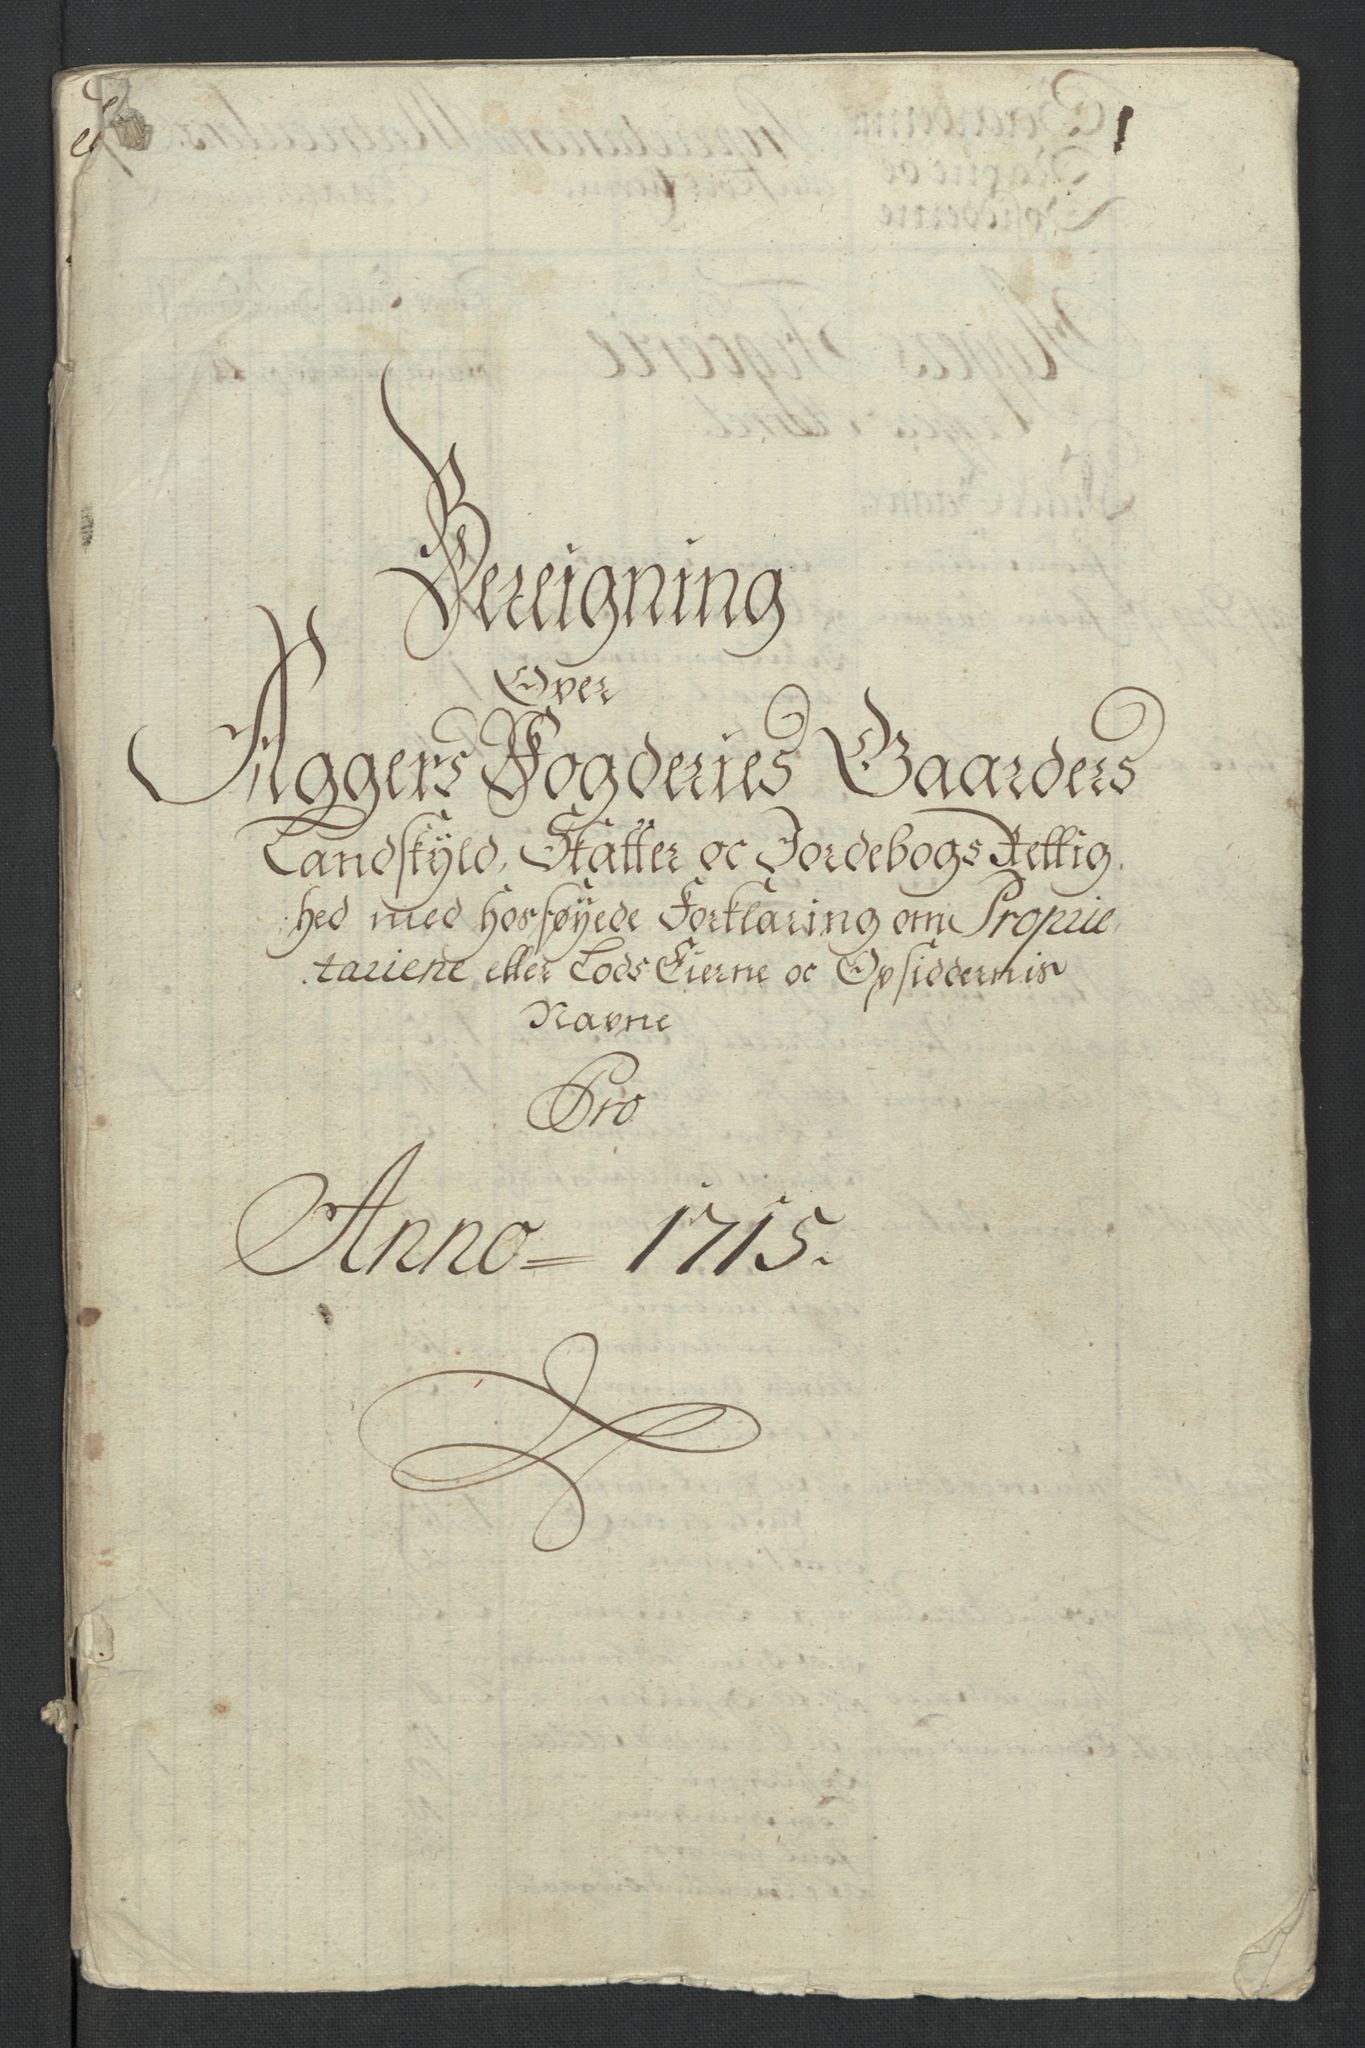 1
Bereigning
Over
Aggers Fogderies Gaarders
Landskÿld, Skatter oc Jordebogs Rettig,
hed med hosføyede Forklaring om Proprie,
tariene eller Lods Eierne oc Opsiddernis
Navne
Pro
Anno = 1715.